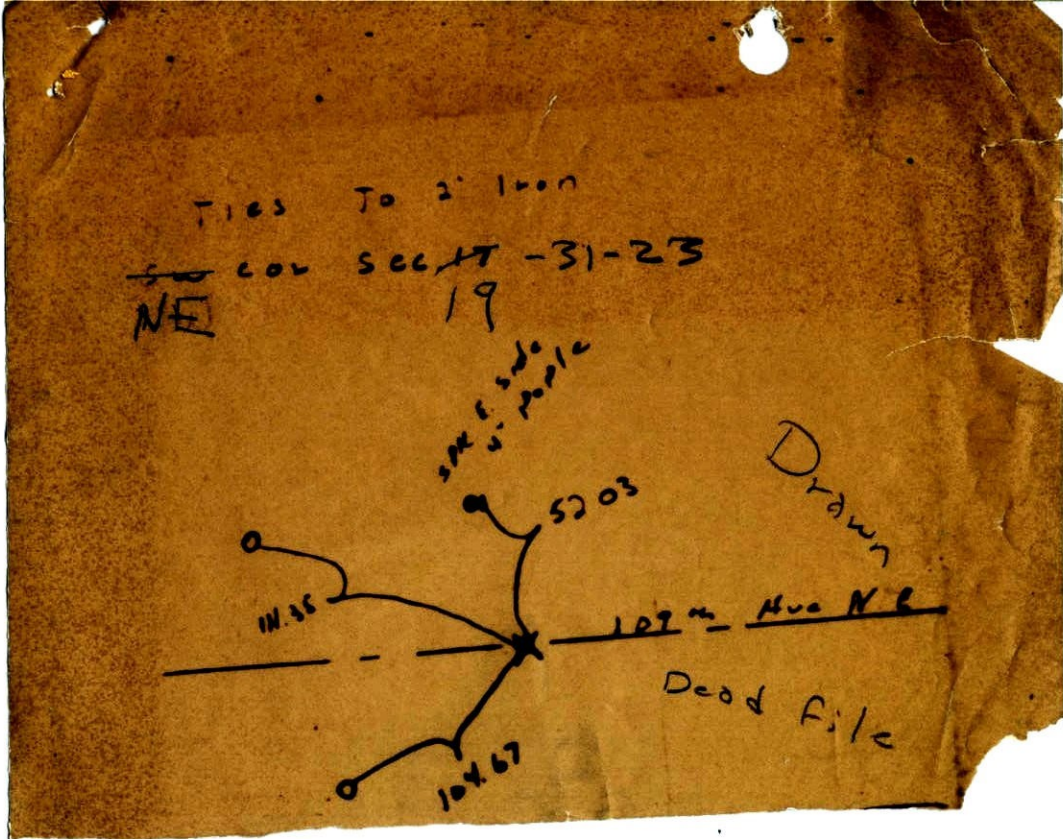 Ties To 2" Iron
sw cor sec, 17 -31-23
NE 19
spk E. side
4" pople
52 03
Drawn
111.35
109 th Ave N E
Dead file
104.67